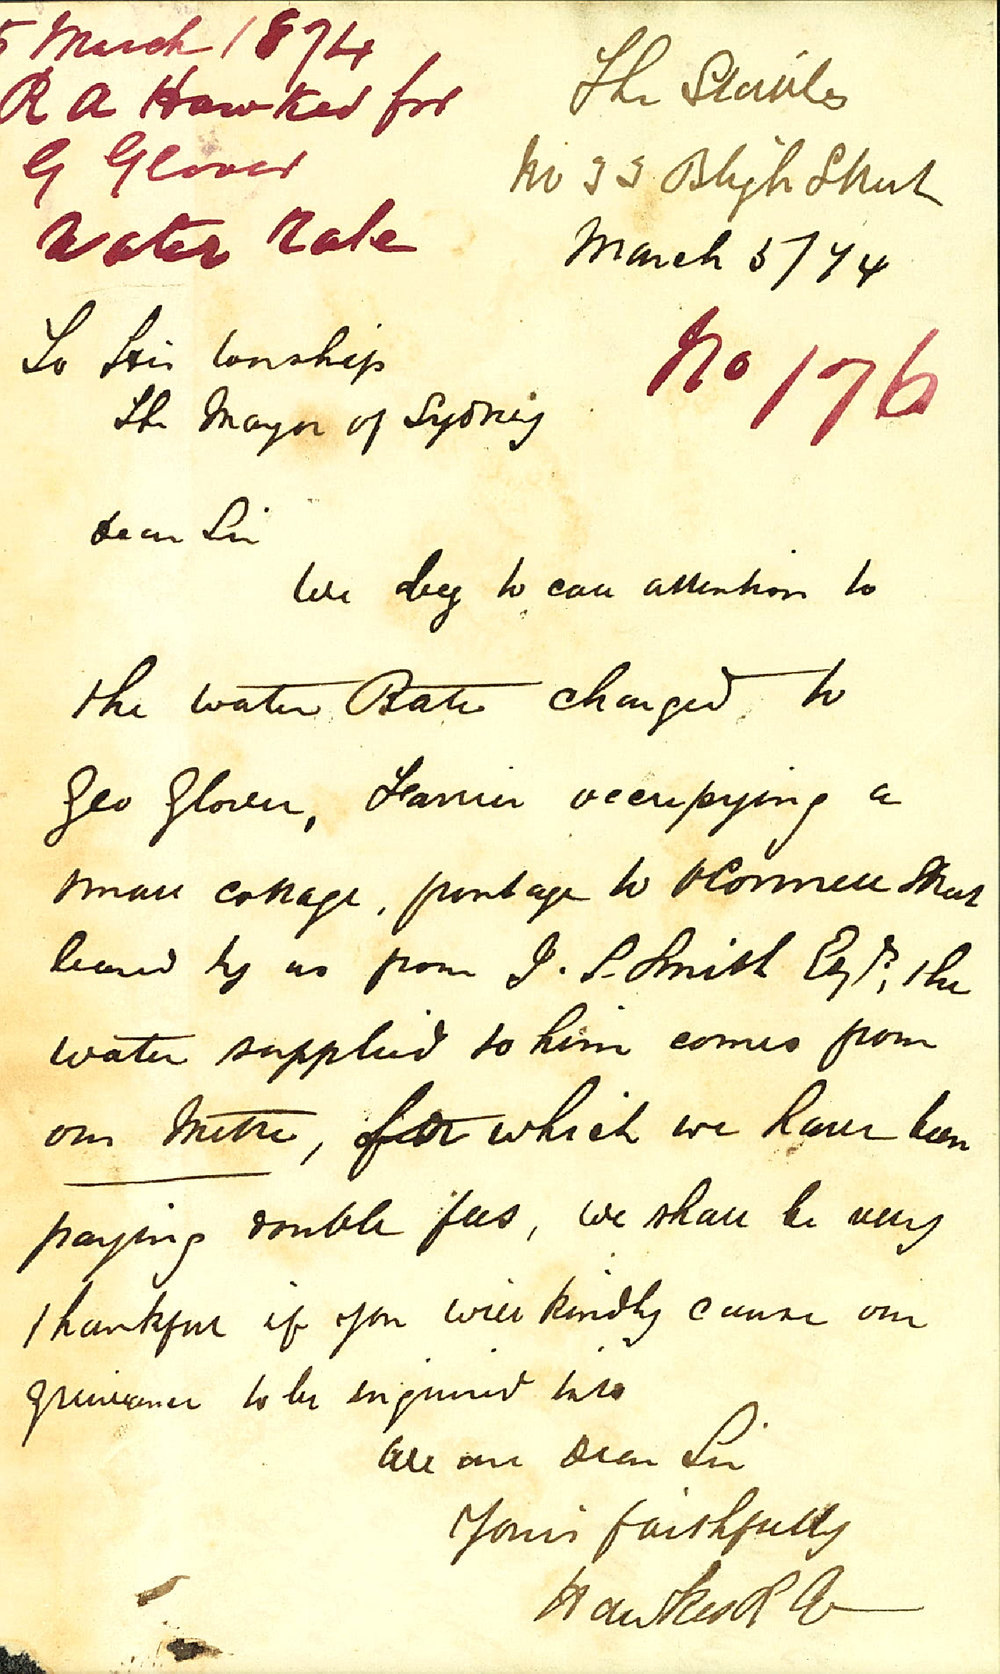 5 March 1874
R A Hawkes for
G Glover
Water Rate
The Stables
No 33 Bligh Street
March 5/74
No 176
To His worship
The Mayor of Sydney
Dear Sir
We beg to call attention to
the water Rate charged to
Geo Glover, Farrier occupying a
small cottage, frontage to O'Connell Street
leased by us from J. S. Smith Esqr, the
water supplied to him comes from
our Metre, for which we have been
paying double fees, we shall be very
thankful if you will kindly cause our
grievance to be inquired into
We are Dear Sir
Yours faithfully
Hawkes R A